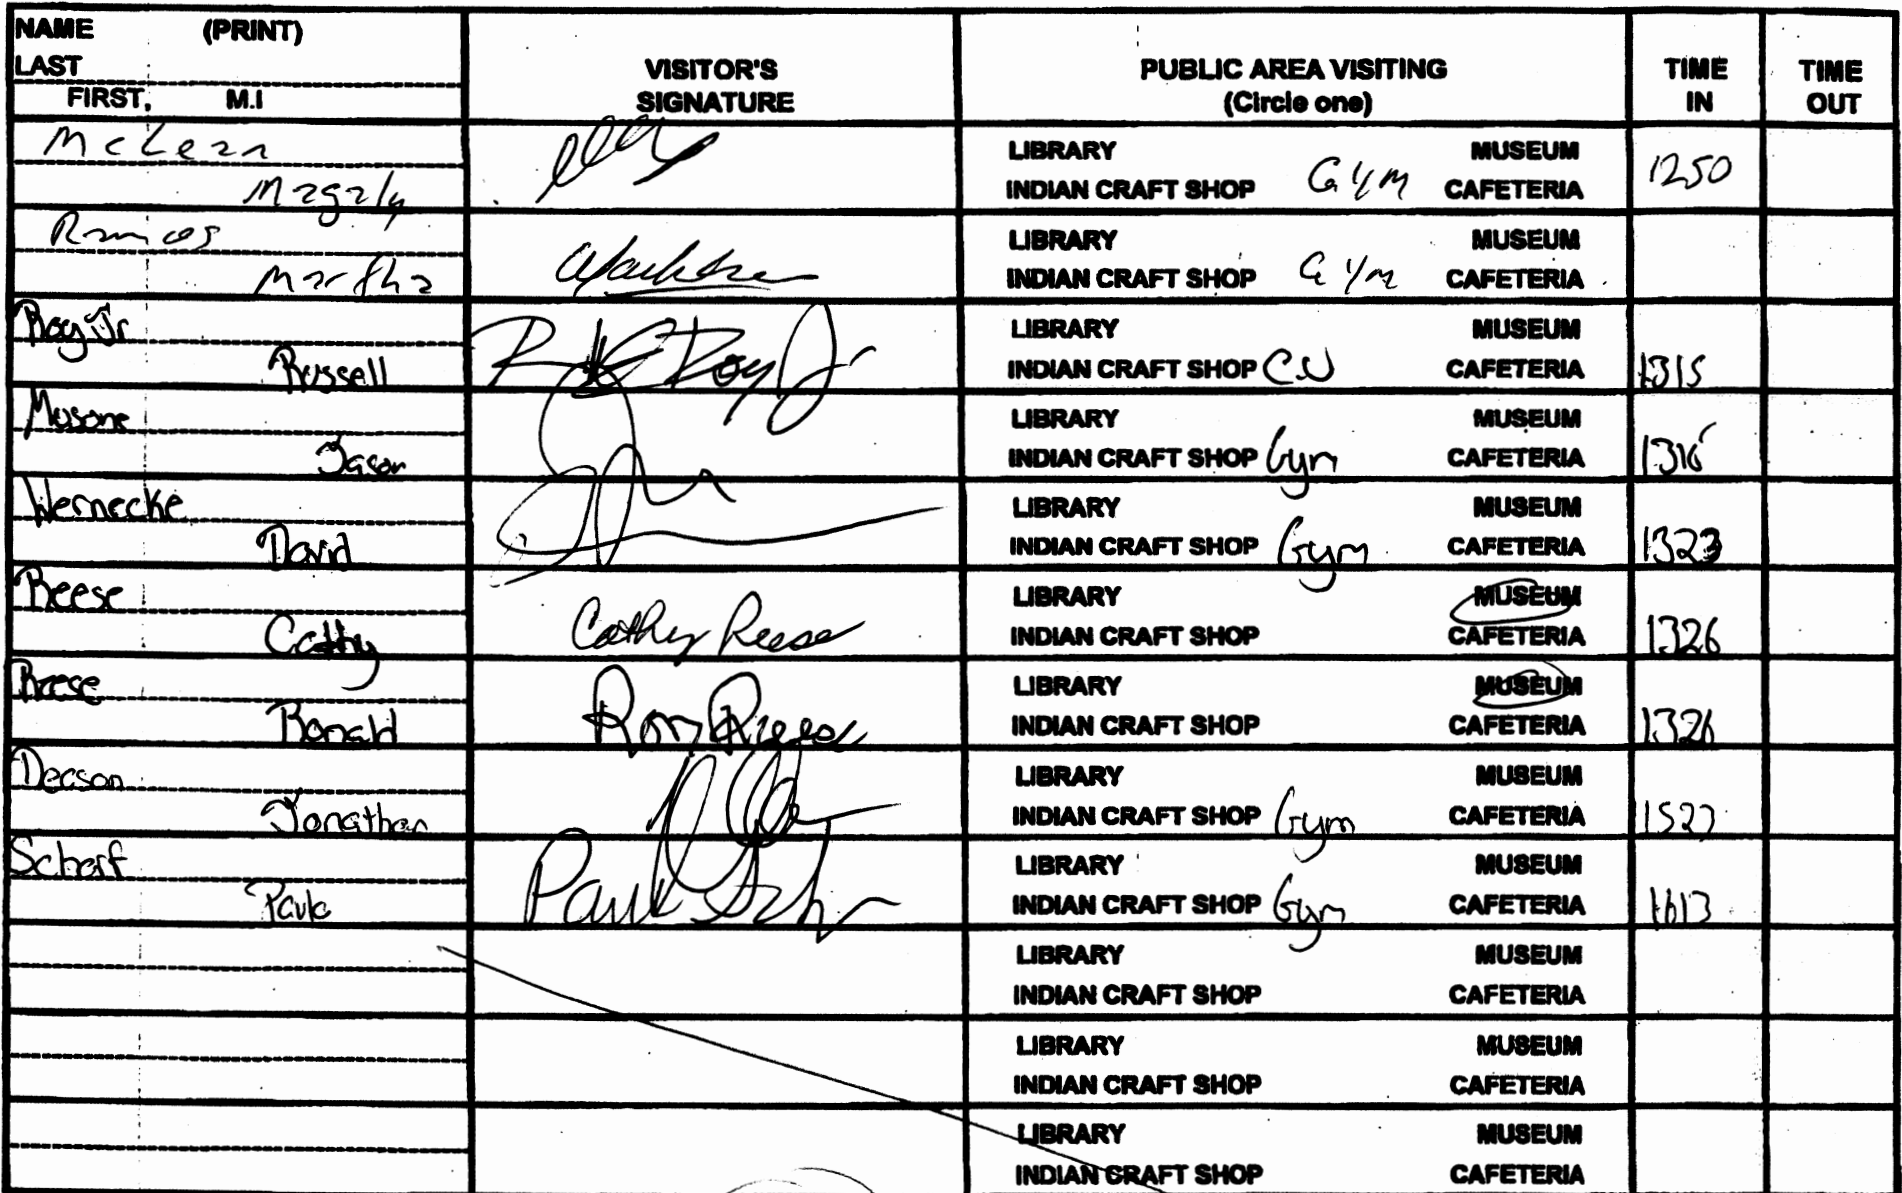 NAME (PRINT)
LAST
FIRST, M.I
VISITOR'S
SIGNATURE
PUBLIC AREA VISITING
(Circle one)
TIME
IN
TIME
OUT
McLean
Magaly
LIBRARY MUSEUM
INDIAN CRAFT SHOP GYM CAFETERIA
1250
Ramos
Martha
LIBRARY MUSEUM
INDIAN CRAFT SHOP GYM CAFETERIA
Roy Jr
Russell
R Roy Jr
LIBRARY MUSEUM
INDIAN CRAFT SHOP CU CAFETERIA
1315
Musone
Jason
LIBRARY MUSEUM
INDIAN CRAFT SHOP Gym CAFETERIA
1316
Wernecke
David
LIBRARY MUSEUM
INDIAN CRAFT SHOP Gym CAFETERIA
1323
Reese
Cathy
Cathy Reese
LIBRARY MUSEUM
INDIAN CRAFT SHOP CAFETERIA
1326
Reese
Ronald
Ron Reese
LIBRARY MUSEUM
INDIAN CRAFT SHOP CAFETERIA
1326
Deason
Jonathan
LIBRARY MUSEUM
INDIAN CRAFT SHOP Gym CAFETERIA
1527
Scharf
Paula
Paula
LIBRARY MUSEUM
INDIAN CRAFT SHOP Gym CAFETERIA
1613
LIBRARY MUSEUM
INDIAN CRAFT SHOP CAFETERIA
LIBRARY MUSEUM
INDIAN CRAFT SHOP CAFETERIA
LIBRARY MUSEUM
INDIAN CRAFT SHOP CAFETERIA